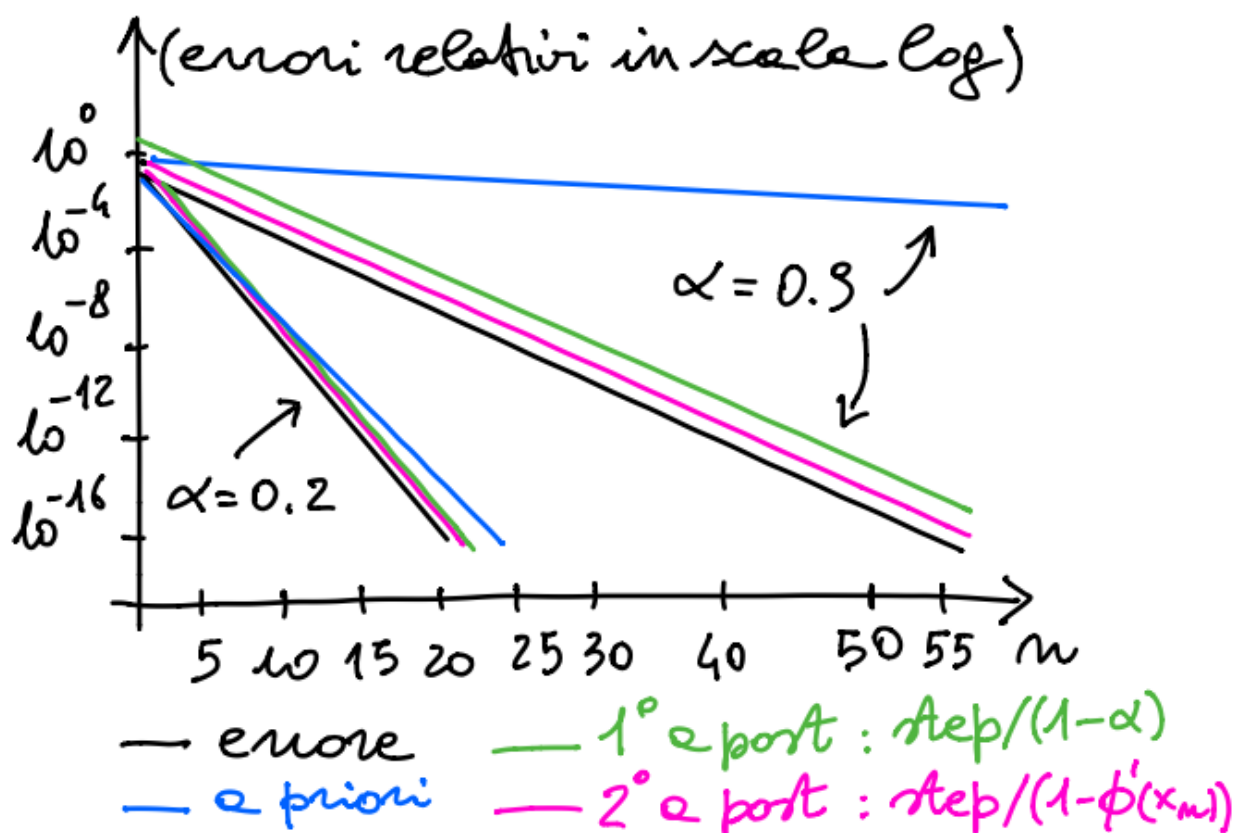 (errori relativi in scala log)
10^0
10^-4
10^-8
10^-12
10^-16
α = 0.9
α = 0.2
5 10 15 20 25 30 40 50 55 n
— errore — 1° a post : step/(1-α)
— a priori — 2° a post : step/(1-ϕ'(x_n))